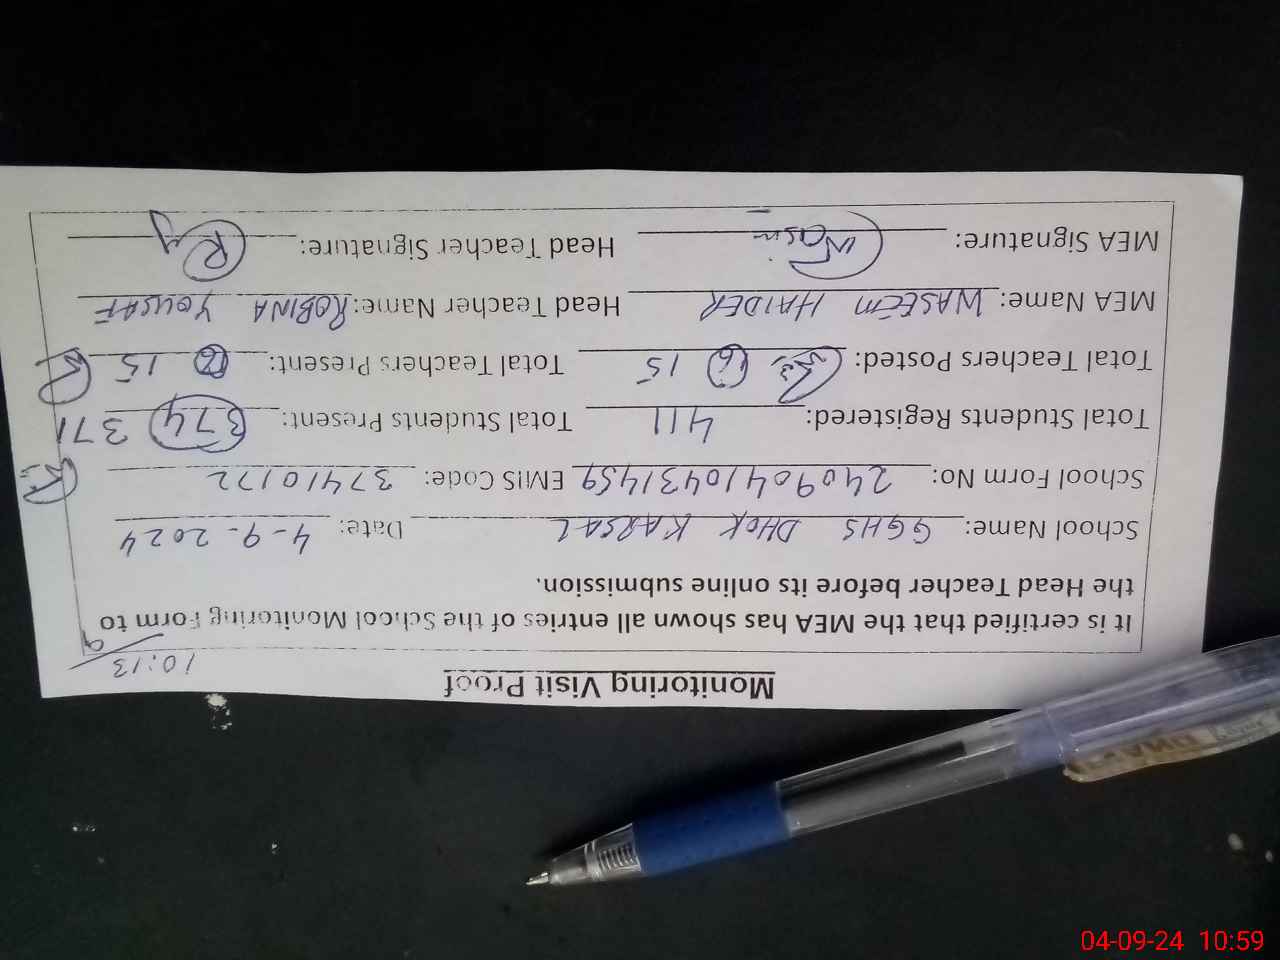 Monitoring Visit Proof
10:13
It is certified that the MEA has shown all entries of the School Monitoring Form to
the Head Teacher before its online submission.
School Name: GGHS DHOK KARSAL Date: 4-9-2024
School Form No: 24090410431459 EMIS Code: 37410172
Total Students Registered: 411 Total Students Present: 374 371
Total Teachers Posted: 16 15 Total Teachers Present: 15
MEA Name: WASEEM HAIDER Head Teacher Name: ROBINA YOUSAF
MEA Signature: Wasim Head Teacher Signature:
04-09-24 10:59